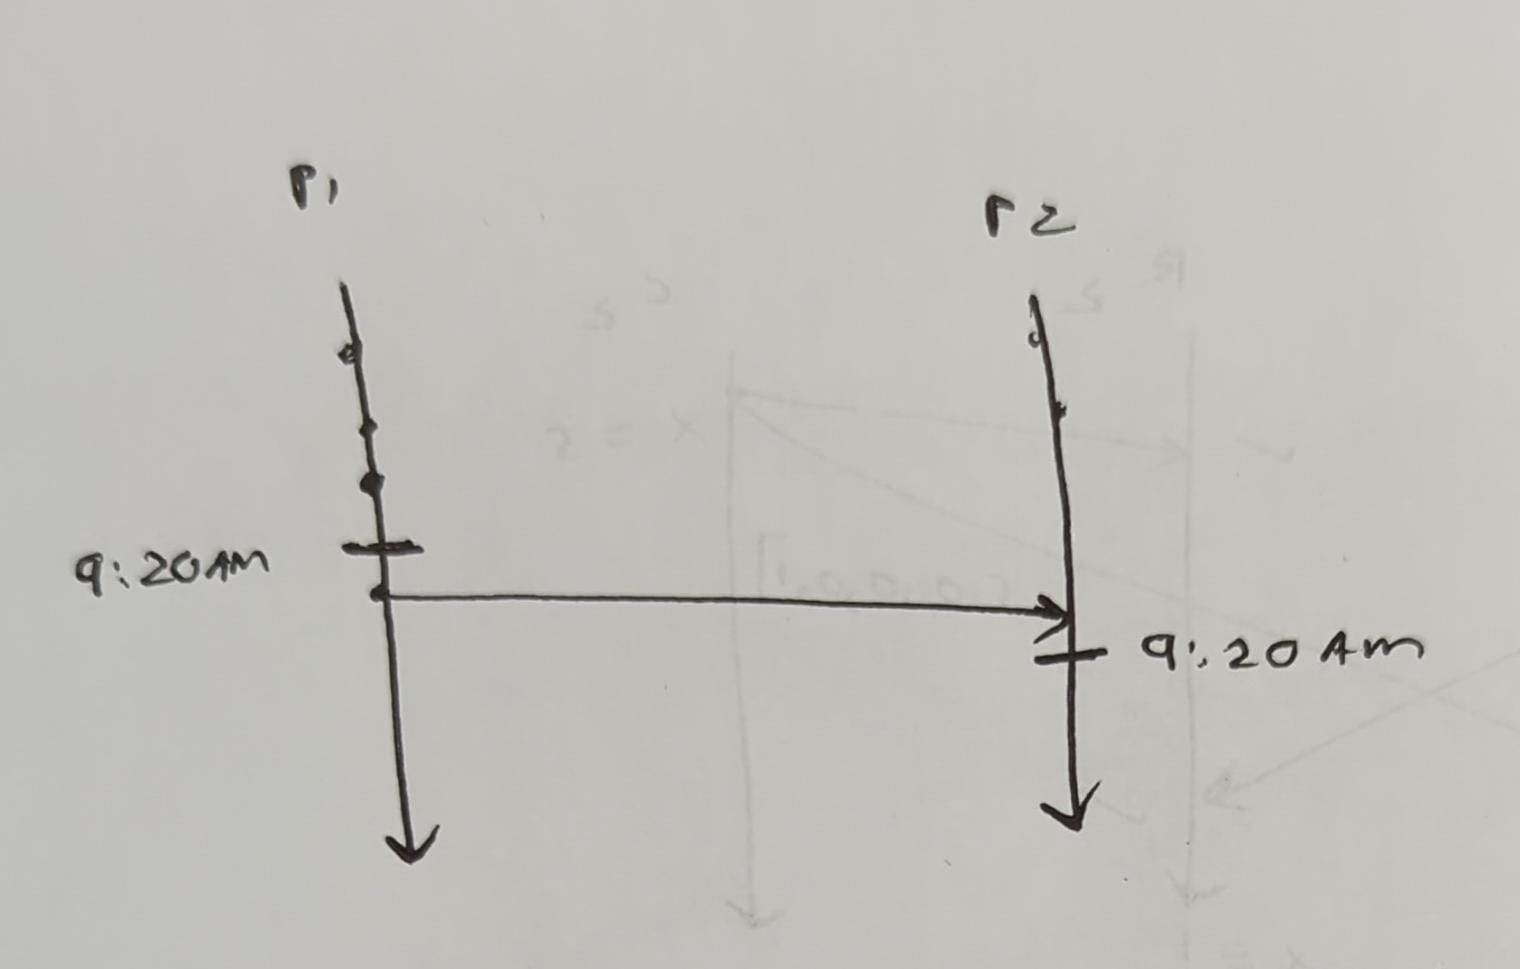 P1
P2
9:20AM
9:20 AM